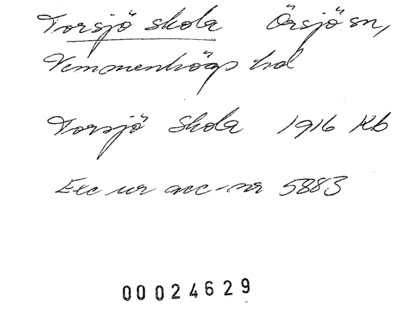 Torsjö skola Örsjö sn,
Vemmenhögs hd
Torsjö skola 1916 Kb
Exc ur acc-nr 5883
00024629